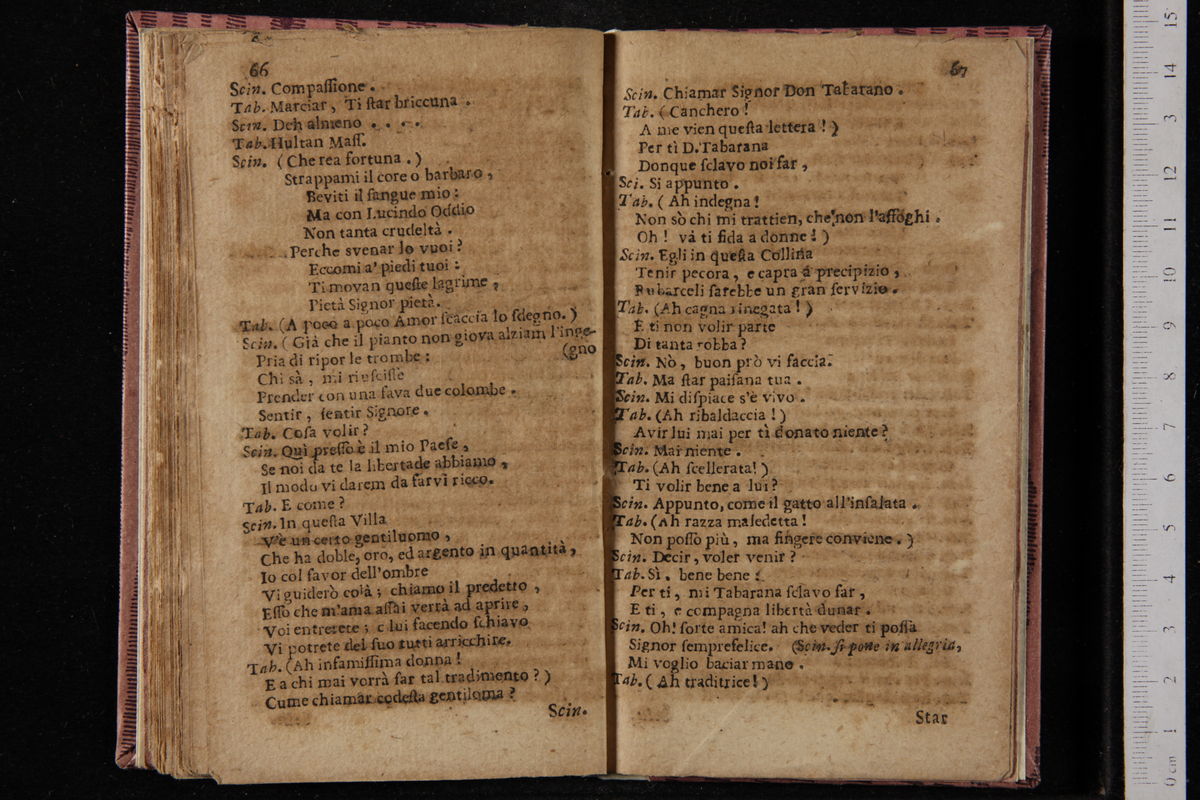 66
Scin. Compaſſione .
Tab. Marciar, Ti ſtar briccuna .
Scin. Deh almeno . . . .
Tab. Hultan Maſſ.
Scin. (Che rea fortuna .)
Strappami il core o barbaro ,
Beviti il ſangue mio :
Ma con Lucindo Oddio
Non tanta crudeltà .
Perche svenar lo vuoi ?
Eccomi a' piedi tuoi :
Ti movan queſte lagrime ,
Pietà Signor pietà.
Tab. (A poco a poco Amor ſcaccia lo ſdegno.)
Scin. (Già che il pianto non giova alziam l'inge-
(gno
Pria di ripor le trombe :
Chi sà , mi riuſciſſe
Prender con una fava due colombe .
Sentir , ſentir Signore .
Tab. Coſa volir ?
Scin. Quì preſſo è il mio Paeſe ,
Se noi da te la libertade abbiamo ,
Il modo vi darem da farvi ricco.
Tab. E come ?
Scin. In queſta Villa
V'è un certo gentiluomo ,
Che ha doble, oro, ed argento in quantità ,
Io col favor dell'ombre
Vi guiderò colà ; chiamo il predetto ,
Eſſo che m'ama aſſai verrà ad aprire ,
Voi entrerete ; e lui facendo ſchiavo
Vi potrete del ſuo tutti arricchire.
Tab. (Ah infamiſſima donna !
E a chi mai vorrà far tal tradimento ? )
Cume chiamar codeſta gentiloma ?
Scin.
67
Scin. Chiamar Signor Don Tabarano .
Tab. (Canchero !
A me vien queſta lettera ! )
Per tì D. Tabarana
Donque ſclavo noi far ,
Sci. Si appunto .
Tab. (Ah indegna !
Non sò chi mi trattien, che non l'aſſoghi .
Oh ! và ti fida a donne ! )
Scin. Egli in queſta Collina
Tenir pecora , e capra á precipizio ,
Rubarceli ſarebbe un gran ſervizio .
Tab. (Ah cagna rinegata ! )
E ti non volir parte
Di tanta robba ?
Scin. Nò , buon prò vi faccia.
Tab. Ma ſtar paiſana tua .
Scin. Mi diſpiace s'è vivo .
Tab. (Ah ribaldaccia ! )
Avir lui mai per tì donato niente ?
Scin. Mai niente .
Tab. (Ah ſcellerata! )
Ti volir bene a lui ?
Scin. Appunto, come il gatto all'inſalata .
Tab. (Ah razza maledetta !
Non poſſo più , ma fingere conviene . )
Scin. Decir , voler venir ?
Tab. Sì . bene bene :
Per ti , mi Tabarana ſclavo far ,
E ti , e compagna libertà dunar .
Scin. Oh! ſorte amica! ah che veder ti poſſa
Signor ſempre felice. (Scin. ſi pone in allegria,
Mi voglio baciar mano .
Tab. (Ah traditrice! )
Star
15
14
13
12
11
10
9
8
7
6
5
4
3
2
1
0 cm